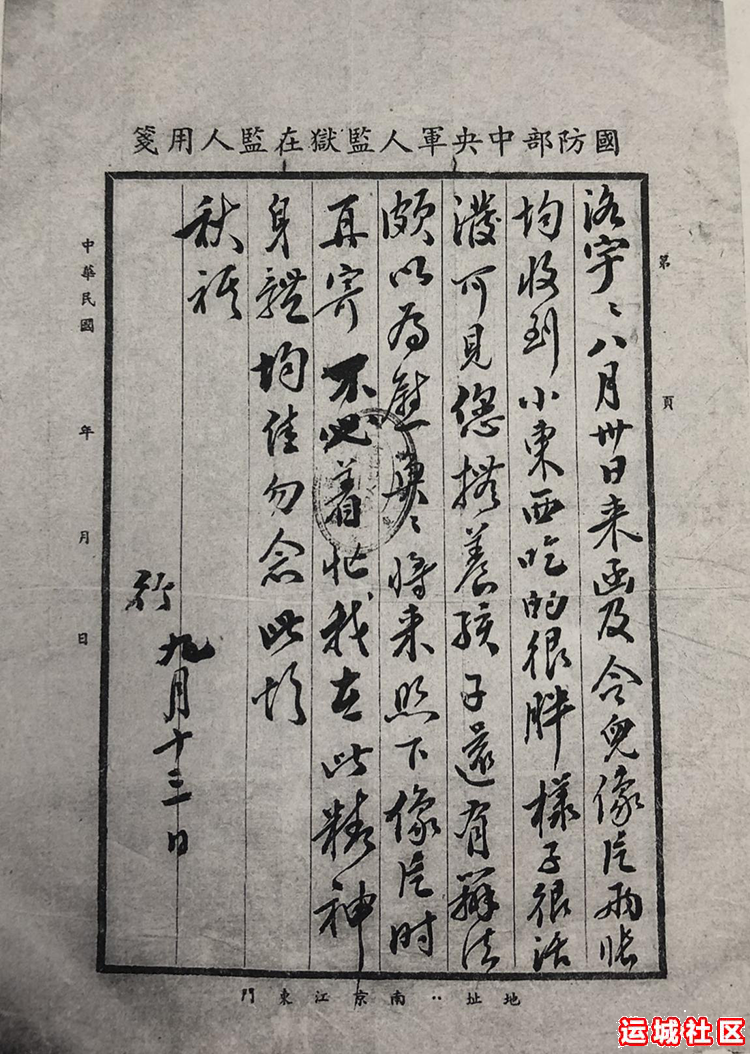 國防部中央軍人監獄在監人用箋
第 頁
洛宇：八月卅日来函及令兒像片兩张
均收到小東西吃的很胖樣子很活
潑可見您撫養孩子還有辦法
頗以為慰 將来照下像片时
再寄不必着忙我在此精神
身體均佳勿念此頌
秋祺
行 九月十三日
中華民國 年 月 日
地址：南京江東門
运城社区